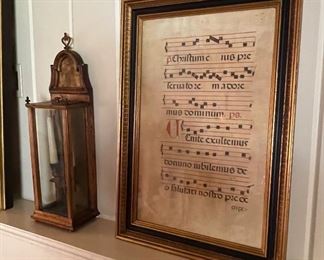 p. Christum e ius pre
serua to re m a dore
mus dominum. ps.
Uenite exultemus
domino iubilemus de
o salutari nostro pre